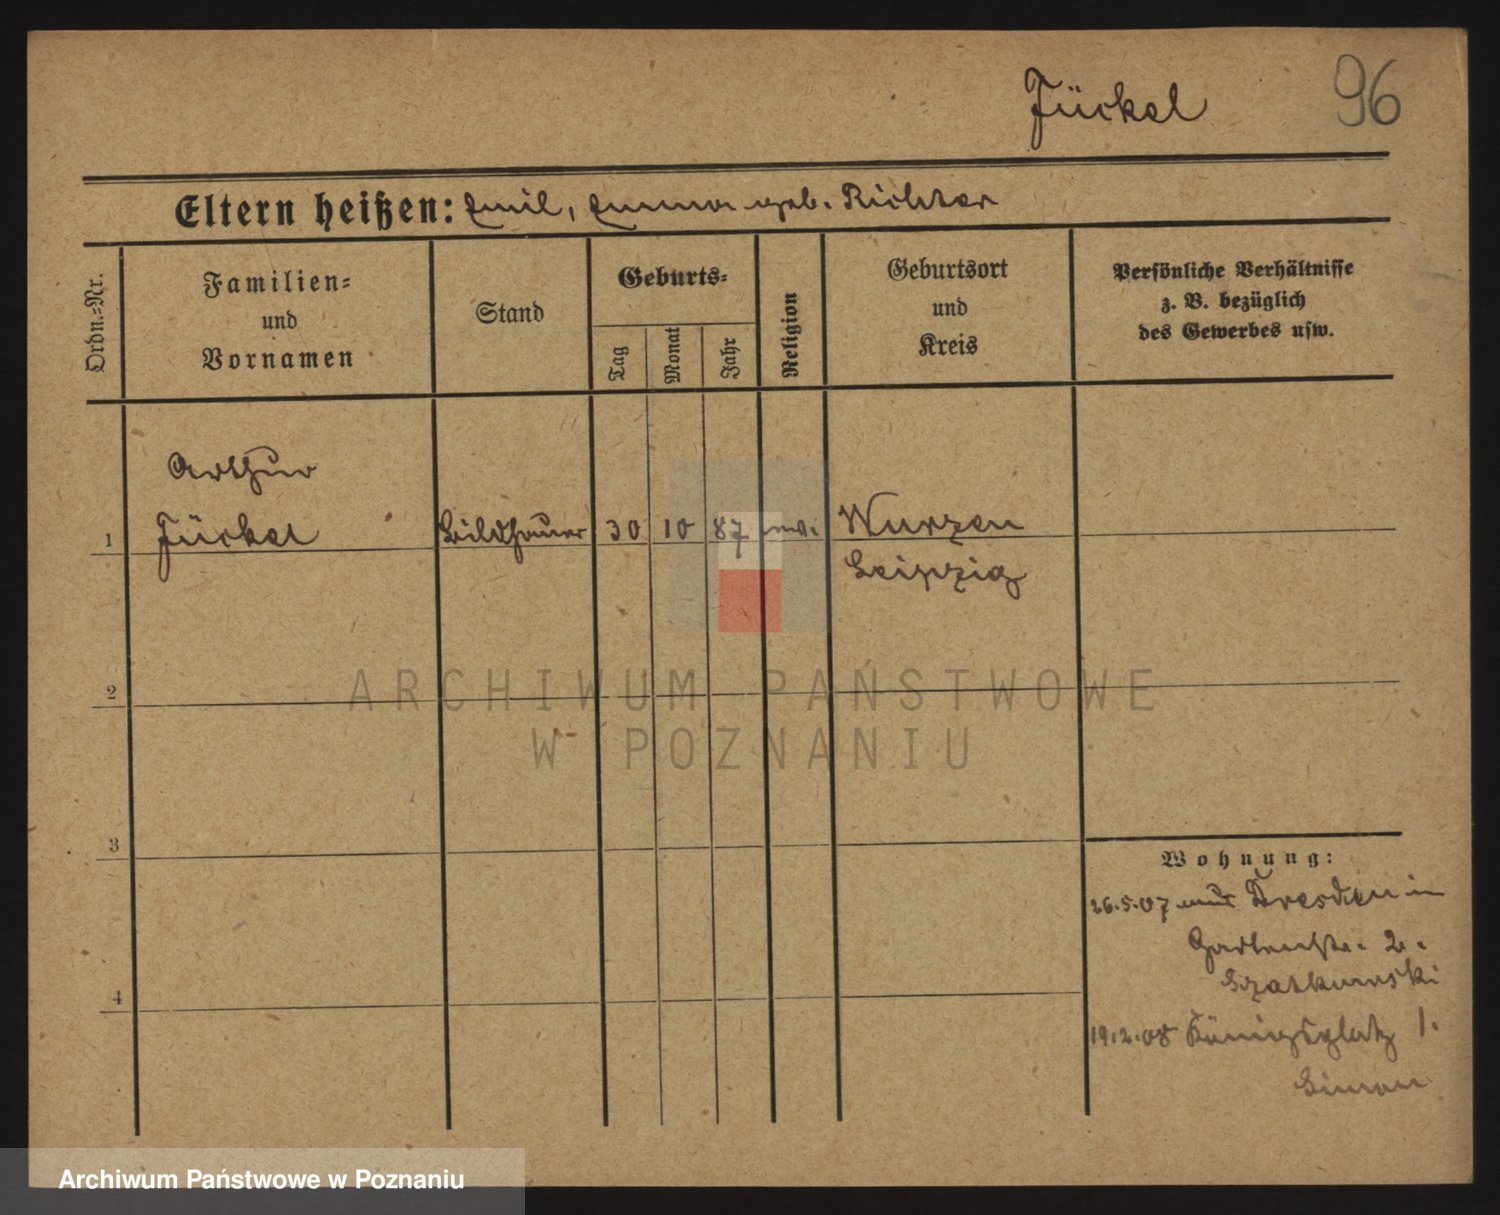 Jückel 96
Eltern heißen: Emil, Emma geb. Richter
Ordn.=Nr.
Familien=
und
Vornamen
Stand
Geburts=
Tag
Monat
Jahr
Religion
Geburtsort
und
Kreis
Persönliche Verhältnisse
z. B. bezüglich
des Gewerbes usw.
Arthur
1 Jückel Bildhauer 30 10 87 ev. Wurzen
Leipzig
2
ARCHIWUM PAŃSTWOWE
W POZNANIU
3
Wohnung:
26.5.07 aus Dresden in
Gartenstr. 2.
4
19.2.08 Königsplatz 1.
Simon
Archiwum Państwowe w Poznaniu